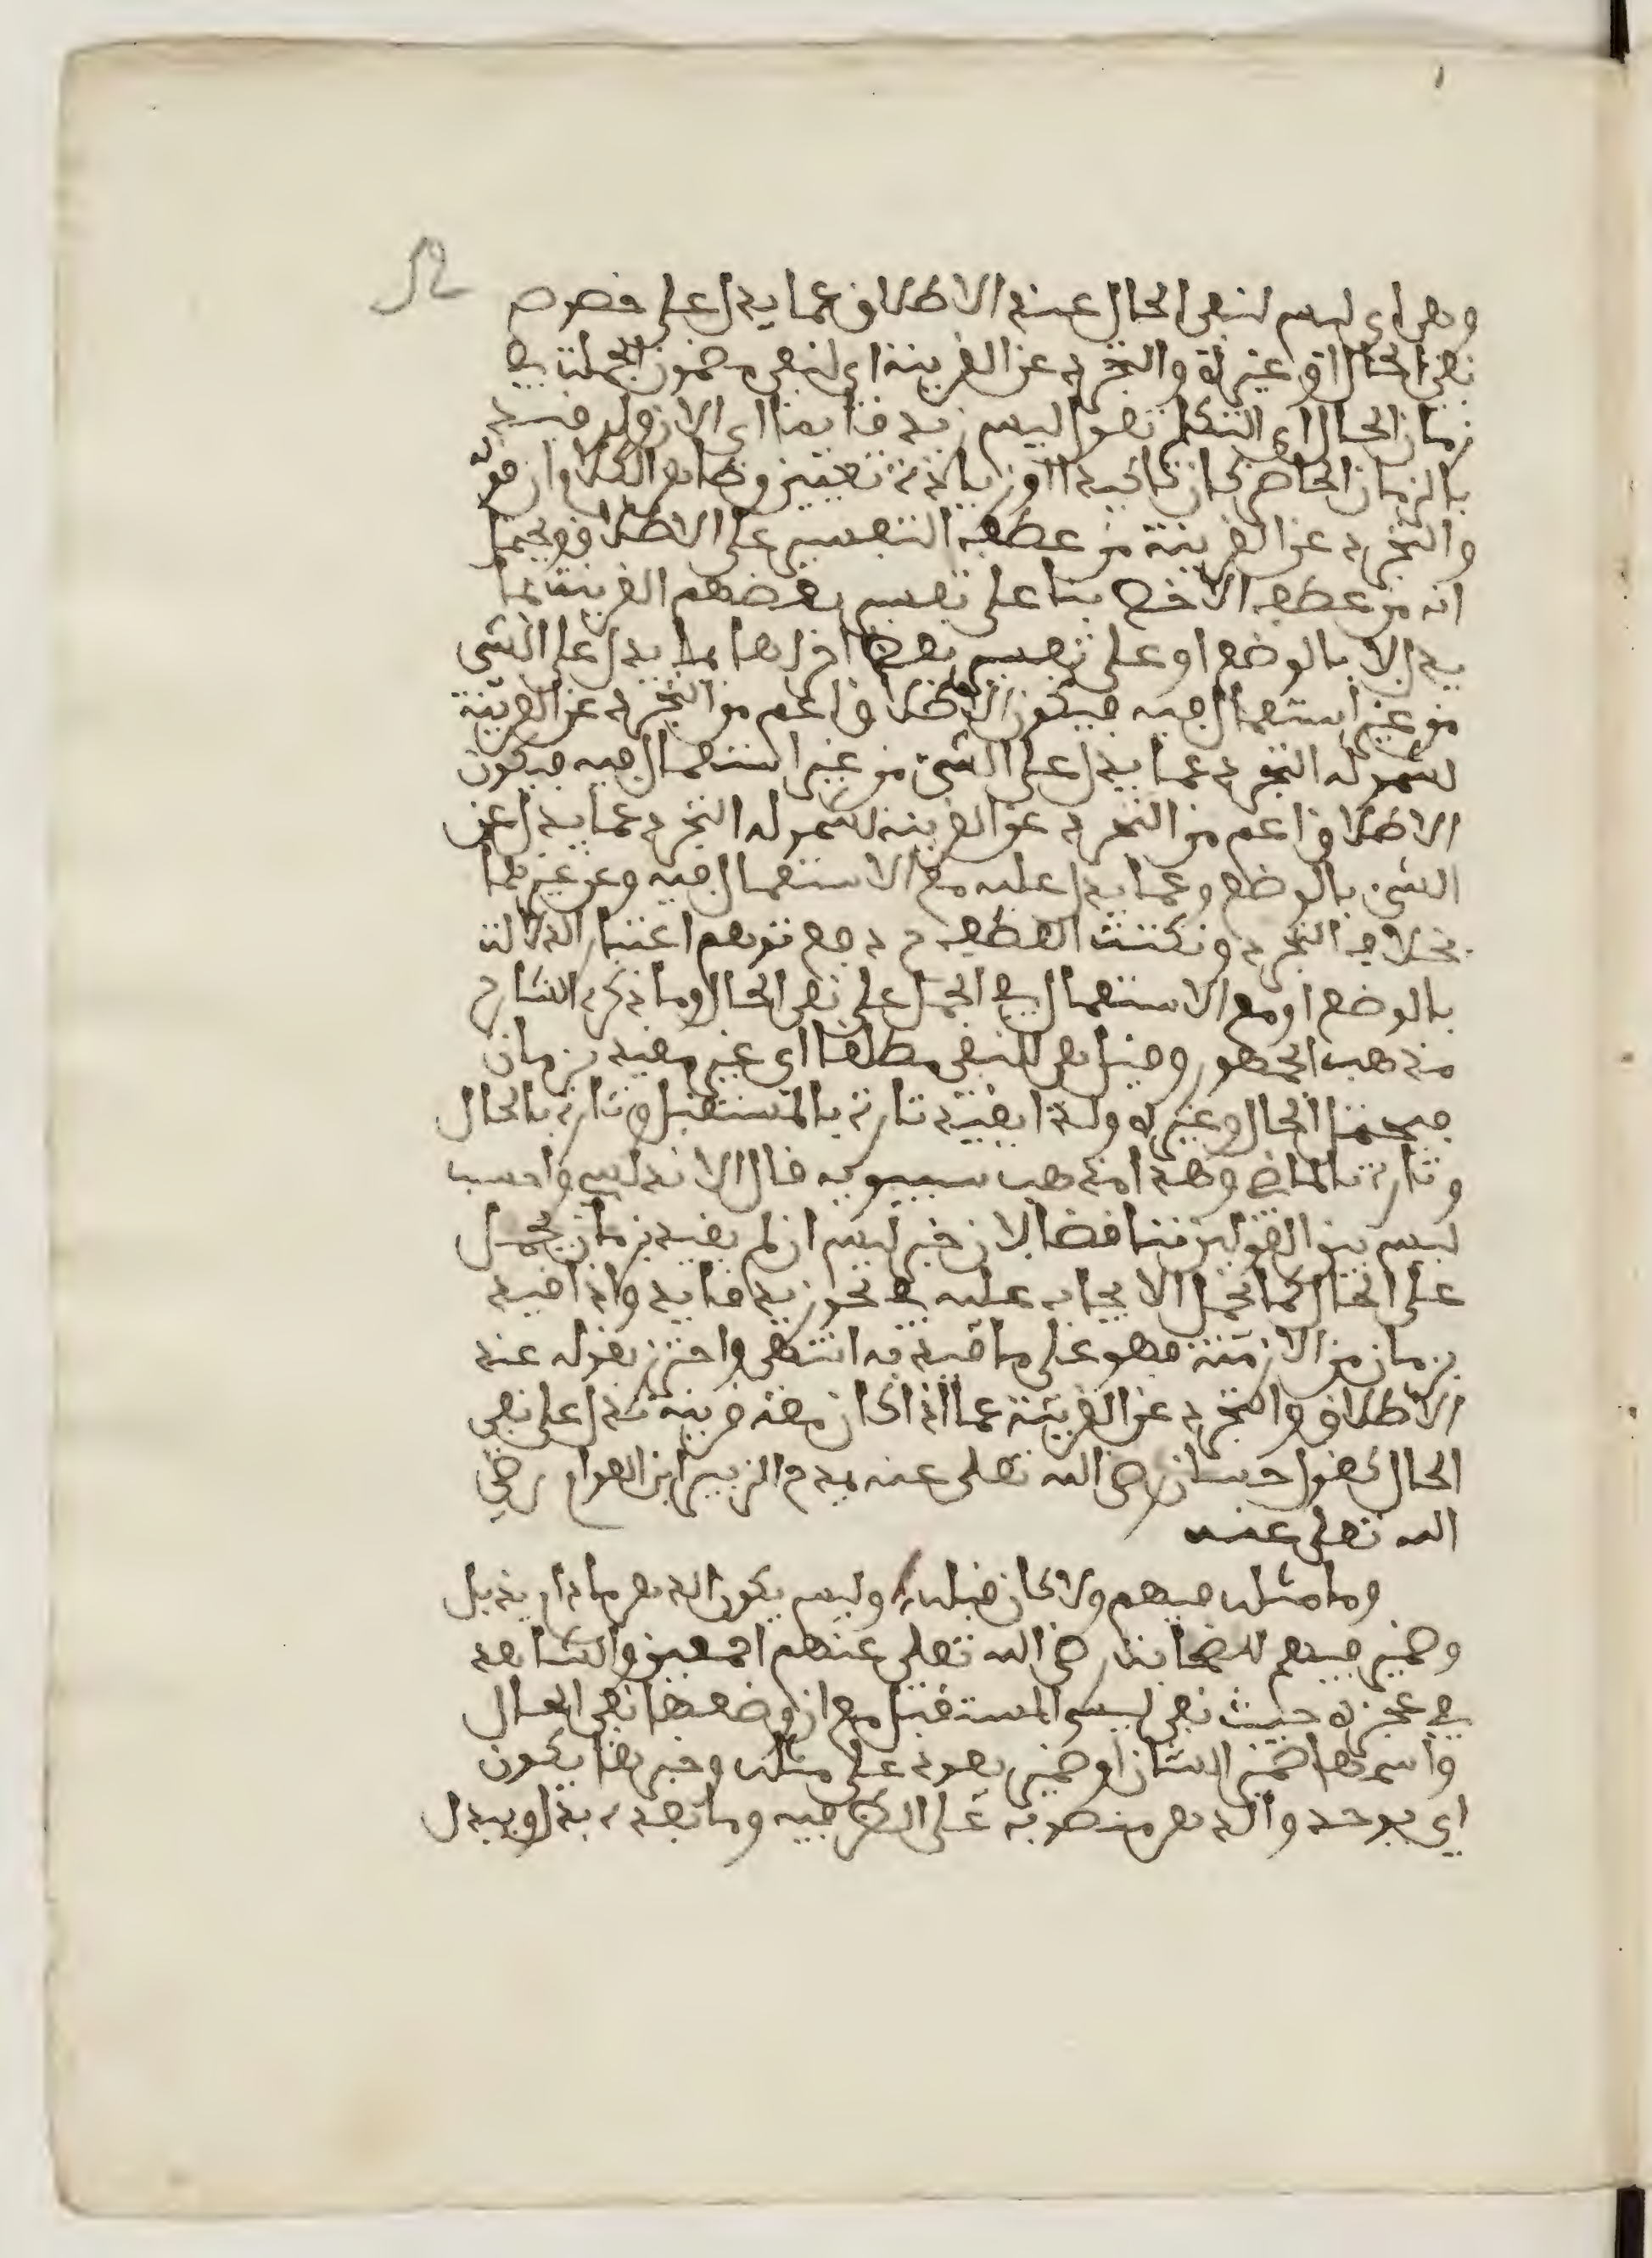 وهي اي ليس لنفي الحال عند الاطلاق عما يدل على خصوص
نفي الحال او غيره والتجرد عن القرينة اي لنفي مضمون الجملة في
زمان الحال اي التكلم تقول ليس زيد قايما اي الان ولو قيد
بالزمان الحاضر كان تاكيدا او زيادة تعيين وظاهر الكلام ان قوله
والتجرد عن القرينة من عطف التفسير على الاطلاق ويحتمل
انه من عطف الاخص بنا على تفسير بعضهم القرينة بما
يدل لا بالوضع او على تفسير بعض اخر لها بما يدل على الشي
من غير استعمال فيه فيكون الاطلاق اعم من التجرد عن القرينة
لشموله التجرد عما يدل على الشي من غير استعمال فيه فيكون
الاطلاق اعم من التجرد عن القرينة لشموله التجرد عما يدل عن
الشي بالوضع وعما يدل عليه مع الاستعمال فيه وعن غيرهما
بخلاف التجرد ونكتة العطف ح دفع توهم اعتبار الدلالة
بالوضع او مع الاستعمال في الحمل على نفي الحال وما ذكره الشارح
مذهب الجمهور وقيل هي للنفي مطلقا اي غير مقيد بزمان
الحال وغيره ولذا تقيد تارة بالمستقبل وتارة بالحال
وتارة بالماضي وهذا مذهب سيبويه قال الاندلسي واحسب
ليس بين القولين تناقضا لان خبر ليس ان لم يقيد بزمان يحمل
على الحال كما يحمل الايجاب عليه في نحو زيد قايد واذا قيد
بزمان من الازمنة فهو على ما قيد به انتهى واحترز بقوله عند
الاطلاق والتجرد عن القرينة عما اذا كان معه قرينة تدل على نفي
الحال كقول حسان رضي الله تعلى عنه يمدح الزبير ابن العوام رضي
الله تعلى عنه
وما مثله فيهم ولا كان قبله وليس يكون الدهر ما دام يذبل
وضمير فيهم للصحابة رضي الله تعلى عنهم اجمعين والشاهد
في عجزه حيث نفي ليس المستقبل مع ان وضعها نفي الحال
واسمها ضمير الشان او ضمير يعود على مثله وخبرها يكون
اي يوجد والدهر منصوب على الظرفيه وما بعده بدل ويبدل